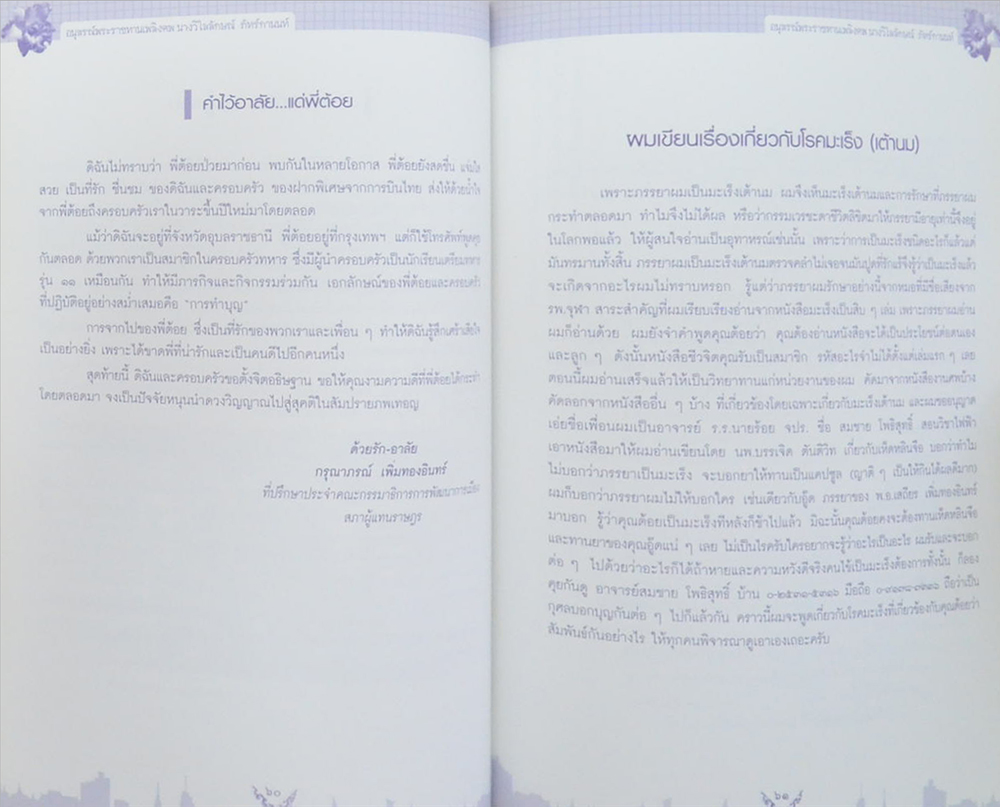 อนุสรณ์พระราชทานเพลิงศพ นางวิไลลักษณ์
คำไว้อาลัย...แด่พี่ต้อย
ดิฉันไม่ทราบว่า พี่ต้อยป่วยมาก่อน พบกันในหลายโอกาส พี่ต้อยยังสดชื่น แจ่มใส
สวย เป็นที่รัก ชื่นชม ของดิฉันและครอบครัว ของฝากพิเศษจากการบินไทย ส่งให้ด้วยน้ำใจ
จากพี่ต้อยถึงครอบครัวเราในวาระขึ้นปีใหม่มาโดยตลอด
แม้ว่าดิฉันจะอยู่ที่จังหวัดอุบลราชธานี พี่ต้อยอยู่ที่กรุงเทพฯ แต่ก็ใช้โทรศัพท์พูดคุย
กันตลอด ด้วยพวกเราเป็นสมาชิกในครอบครัวทหาร ซึ่งมีผู้นำครอบครัวเป็นนักเรียนเตรียมทหาร
รุ่น ๑๑ เหมือนกัน ทำให้มีภารกิจและกิจกรรมร่วมกัน เอกลักษณ์ของพี่ต้อยและครอบครัว
ที่ปฏิบัติอยู่อย่างสม่ำเสมอคือ "การทำบุญ"
การจากไปของพี่ต้อย ซึ่งเป็นที่รักของพวกเราและเพื่อน ๆ ทำให้ดิฉันรู้สึกเศร้าเสียใจ
เป็นอย่างยิ่ง เพราะได้ขาดพี่ที่น่ารักและเป็นคนดีไปอีกคนหนึ่ง
สุดท้ายนี้ ดิฉันและครอบครัวขอตั้งจิตอธิษฐาน ขอให้คุณงามความดีที่พี่ต้อยได้กระทำ
โดยตลอดมา จงเป็นปัจจัยหนุนนำดวงวิญญาณไปสู่สุคติในสัมปรายภพเทอญ
ด้วยรัก-อาลัย
กรุณาภรณ์ เพิ่มทองอินทร์
ที่ปรึกษาประจำคณะกรรมาธิการการพัฒนาการเมือง
สภาผู้แทนราษฎร
๖๐
อนุสรณ์พระราชทานเพลิงศพ นางวิไลลักษณ์
ผมเขียนเรื่องเกี่ยวกับโรคมะเร็ง (เต้านม)
เพราะภรรยาผมเป็นมะเร็งเต้านม ผมจึงเห็นมะเร็งเต้านมและการรักษาที่ภรรยาผม
กระทำตลอดมา ทำไมจึงไม่ได้ผล หรือว่ากรรมเวรชะตาชีวิตลิขิตมาให้ภรรยามีอายุเท่านี้จึงอยู่
ในโลกพอแล้ว ให้ผู้สนใจอ่านเป็นอุทาหรณ์เช่นนั้น เพราะว่าการเป็นมะเร็งชนิดอะไรก็แล้วแต่
มันทรมานทั้งสิ้น ภรรยาผมเป็นมะเร็งเต้านมตรวจคลำไม่เจอจนมันปูดที่รักแร้จึงรู้ว่าเป็นมะเร็งแล้ว
จะเกิดจากอะไรผมไม่ทราบหรอก รู้แต่ว่าภรรยาผมรักษาอย่างนี้จากหมอที่มีชื่อเสียงจาก
รพ.จุฬา สาระสำคัญที่ผมเรียบเรียงอ่านจากหนังสือมะเร็งเป็นสิบ ๆ เล่ม เพราะภรรยาผมอ่าน
ผมก็อ่านด้วย ผมยังจำคำพูดคุณต้อยว่า คุณต้องอ่านหนังสือจะได้เป็นประโยชน์ต่อตนเอง
และลูก ๆ ดังนั้นหนังสือชีวจิตคุณรับเป็นสมาชิก รหัสอะไรจำไม่ได้ตั้งแต่เล่มแรก ๆ เลย
ตอนนี้ผมอ่านเสร็จแล้วให้เป็นวิทยาทานแก่หน่วยงานของผม คัดมาจากหนังสืองานศพบ้าง
คัดลอกจากหนังสืออื่น ๆ บ้าง ที่เกี่ยวข้องโดยเฉพาะเกี่ยวกับมะเร็งเต้านม และผมขออนุญาต
เอ่ยชื่อเพื่อนผมเป็นอาจารย์ ร.ร.นายร้อย จปร. ชื่อ สมชาย โพธิสุทธิ์ สอนวิชาไฟฟ้า
เอาหนังสือมาให้ผมอ่านเขียนโดย นพ.บรรเจิด ตันติวิท เกี่ยวกับเห็ดหลินจือ บอกว่าทำไม
ไม่บอกว่าภรรยาเป็นมะเร็ง จะบอกยาให้ทานเป็นแคปซูล (ญาดี ๆ เป็นให้กินได้ผลดีมาก)
ผมก็บอกว่าภรรยาผมไม่ให้บอกใคร เช่นเดียวกับอู๊ด ภรรยาของ พ.อ.เสถียร เพิ่มทองอินทร์
มาบอก รู้ว่าคุณต้อยเป็นมะเร็งทีหลังก็ช้าไปแล้ว มิฉะนั้นคุณต้อยคงจะต้องทานเห็ดหลินจือ
และทานยาของคุณอู๊ดแน่ ๆ เลย ไม่เป็นไรครับใครอยากจะรู้ว่าอะไรเป็นอะไร ผมรับและจะบอก
ต่อ ๆ ไปด้วยว่าอะไรก็ได้ถ้าหายและความหวังดีจริงคนไข้เป็นมะเร็งต้องการทั้งนั้น ก็ลอง
คุยกันดู อาจารย์สมชาย โพธิสุทธิ์ บ้าน มือถือ ถือว่าเป็น
กุศลบอกบุญกันต่อ ๆ ไปก็แล้วกัน คราวนี้ผมจะพูดเกี่ยวกับโรคมะเร็งที่เกี่ยวข้องกับคุณต้อยว่า
สัมพันธ์กันอย่างไร ให้ทุกคนพิจารณาดูเอาเองเถอะครับ
๖๑